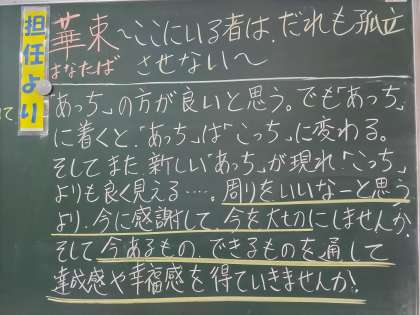 担任より
華束～ここにいる者は、だれも孤立
はなたば
させない～
「あっち」の方が良いと思う。でも「あっち」
に着くと、「あっち」は「こっち」に変わる。
そしてまた、新しい「あっち」が現れ「こっち」
よりも良く見える……。周りをいいなーと思う
より、今に感謝して、今を大切にしませんか。
そして今あるもの、できるものを通して
達成感や幸福感を得ていきませんか!